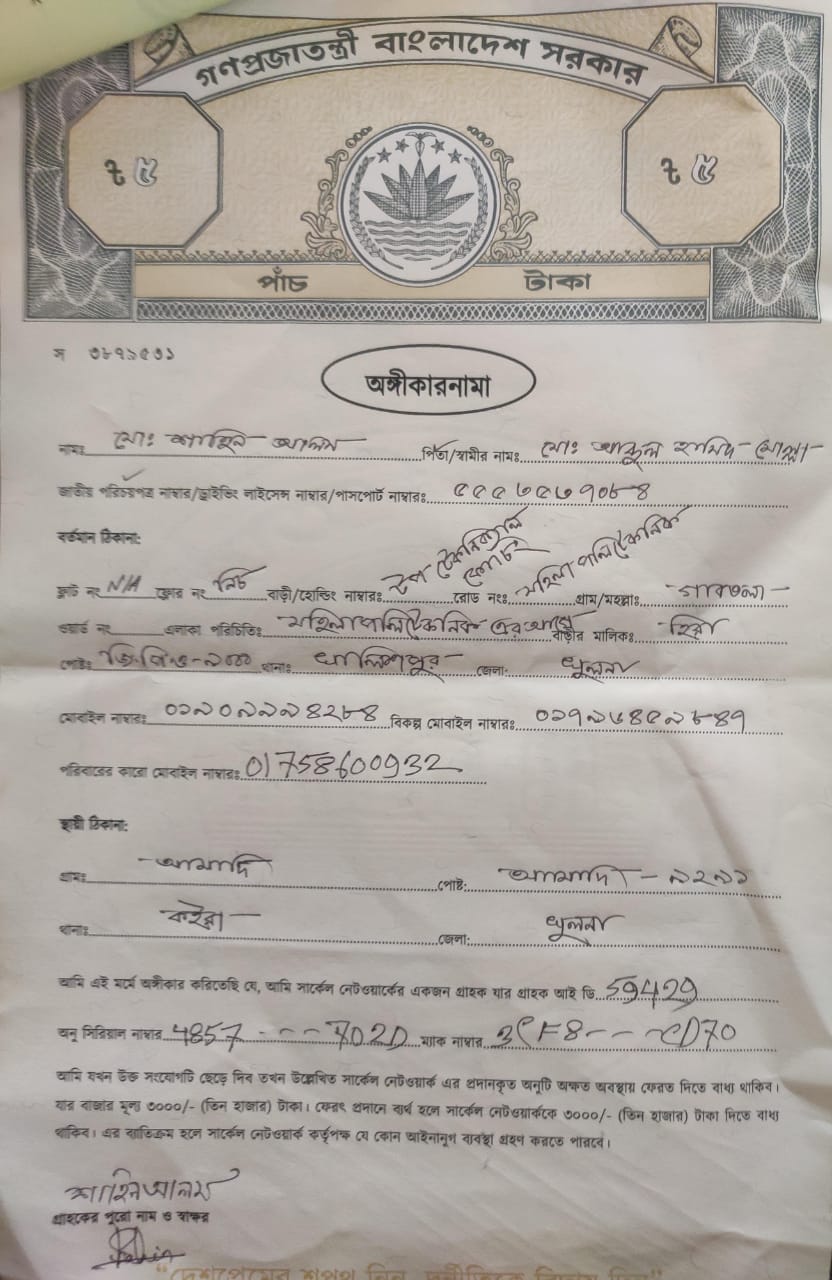 গণপ্রজাতন্ত্রী বাংলাদেশ সরকার
৳ ৫ ৳ ৫
পাঁচ টাকা
স ৩৮৭৯৫৩১
অঙ্গীকারনামা
নামঃ মোঃ শাহিন আলম পিতা/স্বামীর নামঃ মোঃ আব্দুল হামিদ মোল্লা
জাতীয় পরিচয়পত্র নাম্বার/ড্রাইভিং লাইসেন্স নাম্বার/পাসপোর্ট নাম্বারঃ ৫৫৫৬৫৬৭০৮৪
বর্তমান ঠিকানা:
ফ্লাট নং N/A ফ্লোর নং নিচ বাড়ী/হোল্ডিং নাম্বারঃ টেকনিক্যাল কোচিং রোড নংঃ মহিলা পলিটেকনিক গ্রাম/মহল্লাঃ
ওয়ার্ড নং এলাকা পরিচিতিঃ মহিলা পলিটেকনিক এর আগে বাড়ীর মালিকঃ হিরা
পোষ্টঃ জি.পি.ও-৯০০০ থানাঃ খালিশপুর জেলা: খুলনা
মোবাইল নাম্বারঃ ০১৯০৯৯৯৪২৮৪ বিকল্প মোবাইল নাম্বারঃ ০১৭৯৬৪৫৯৮৪৭
পরিবারের কারো মোবাইল নাম্বারঃ 01758600932
স্থায়ী ঠিকানা:
গ্রামঃ আমাদি পোষ্ট: আমাদি - ৯২৯১
থানাঃ কইরা জেলা: খুলনা
আমি এই মর্মে অঙ্গীকার করিতেছি যে, আমি সার্কেল নেটওয়ার্কের একজন গ্রাহক যার গ্রাহক আই ডি 59429
অনু সিরিয়াল নাম্বার 4857 - - - 702D ম্যাক নাম্বার 3CF8 - - - CD70
আমি যখন উক্ত সংযোগটি ছেড়ে দিব তখন উল্লেখিত সার্কেল নেটওয়ার্ক এর প্রদানকৃত অনুটি অক্ষত অবস্থায় ফেরত দিতে বাধ্য থাকিব।
যার বাজার মূল্য ৩০০০/- (তিন হাজার) টাকা। ফেরৎ প্রদানে ব্যর্থ হলে সার্কেল নেটওয়ার্ককে ৩০০০/- (তিন হাজার) টাকা দিতে বাধ্য
থাকিব। এর ব্যতিক্রম হলে সার্কেল নেটওয়ার্ক কর্তৃপক্ষ যে কোন আইনানুগ ব্যবস্থা গ্রহণ করতে পারবে।
শাহিন আলম
গ্রাহকের পুরো নাম ও স্বাক্ষর